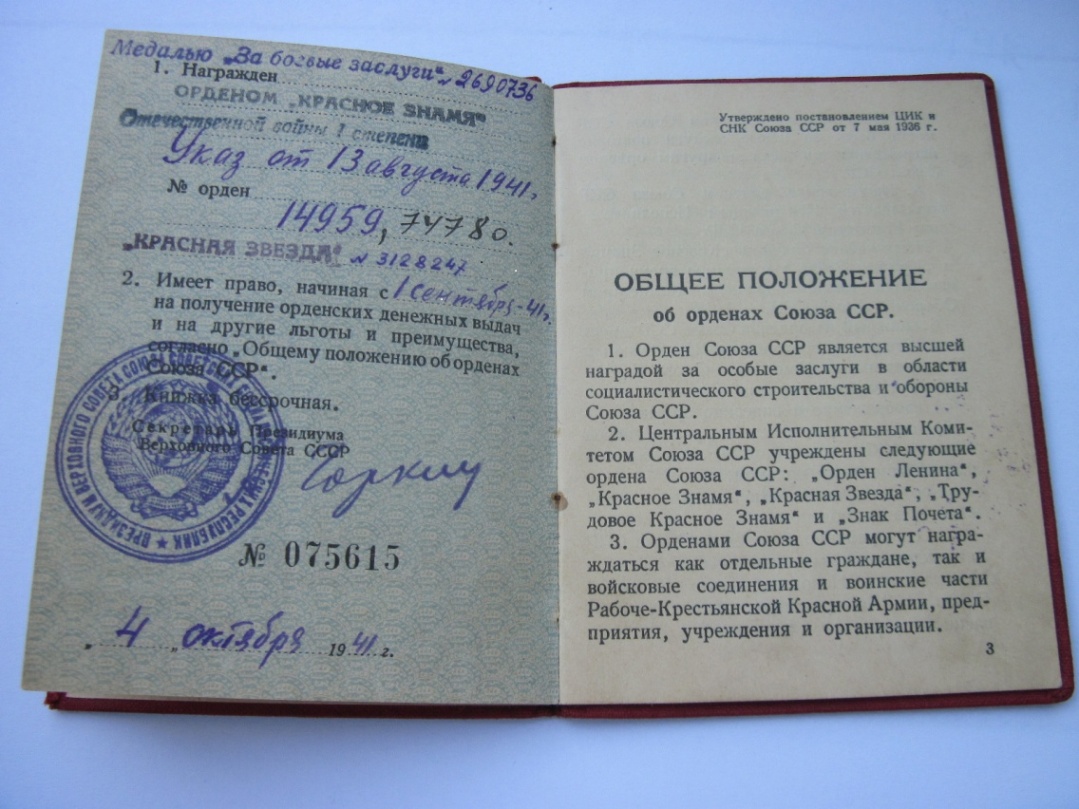 Медалью „За боевые заслуги“ № 2690736
1. Награжден
ОРДЕНОМ „КРАСНОЕ ЗНАМЯ“
Отечественной войны I степени
Указ от 13 августа 1941г.
№ орден
14959, 74780.
„КРАСНАЯ ЗВЕЗДА“ № 3128247
2. Имеет право, начиная с 1 сентября-41г.
на получение орденских денежных выдач
и на другие льготы и преимущества,
согласно „Общему положению об орденах
Союза ССР“.
3. Книжка бессрочная.
Секретарь Президиума
Верховного Совета СССР
Горкин
ПРЕЗИДИУМ ВЕРХОВНОГО СОВЕТА СОЮЗА СОВЕТСКИХ СОЦИАЛИСТИЧЕСКИХ РЕСПУБЛИК
№ 075615
„ 4 „ октября 1941 г.
Утверждено постановлением ЦИК и
СНК Союза ССР от 7 мая 1936 г.
ОБЩЕЕ ПОЛОЖЕНИЕ
об орденах Союза ССР.
1. Орден Союза ССР является высшей
наградой за особые заслуги в области
социалистического строительства и обороны
Союза ССР.
2. Центральным Исполнительным Коми-
тетом Союза ССР учреждены следующие
ордена Союза ССР: „Орден Ленина“,
„Красное Знамя“, „Красная Звезда“, „Тру-
довое Красное Знамя“ и „Знак Почета“.
3. Орденами Союза ССР могут награ-
ждаться как отдельные граждане, так и
войсковые соединения и воинские части
Рабоче-Крестьянской Красной Армии, пред-
приятия, учреждения и организации.
3